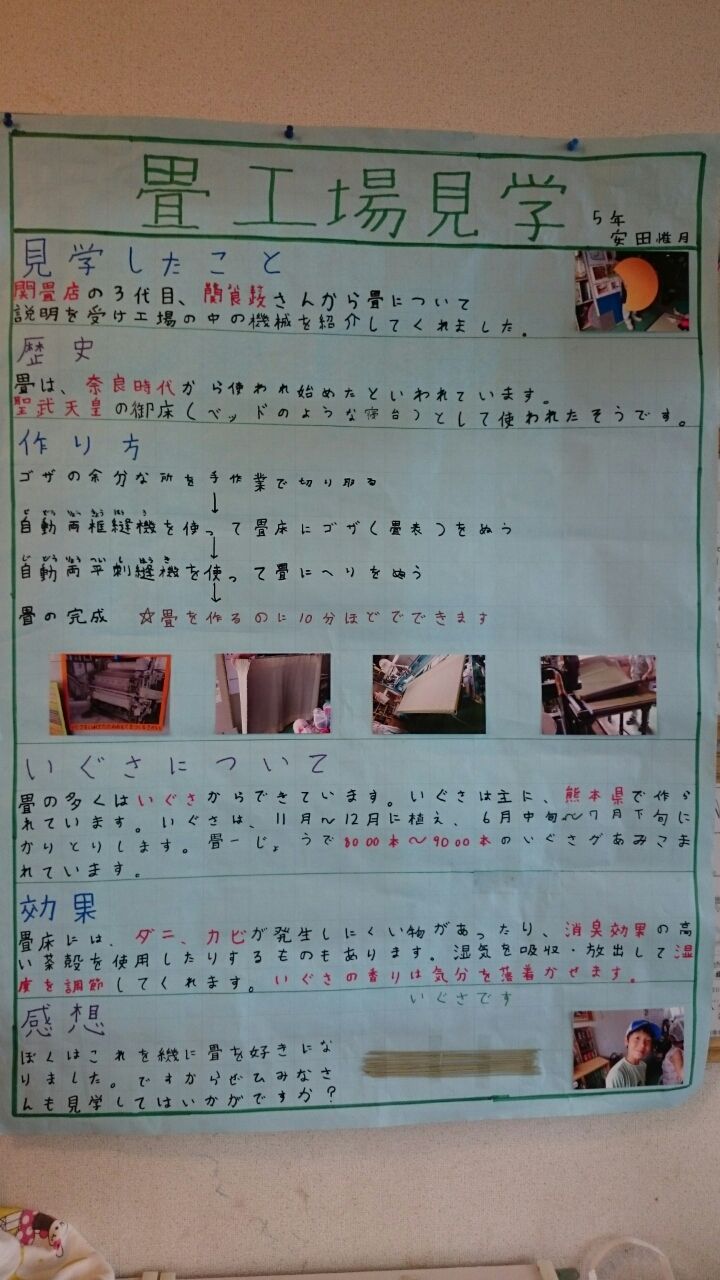 畳工場見学
5年
安田惟月
見学したこと
関畳店の3代目、関良政さんから畳について
説明を受け工場の中の機械を紹介してくれました。
歴史
畳は、奈良時代から使われ始めたといわれています。
聖武天皇の御床(ベッドのような寝台)として使われたそうです。
作り方
ゴザの余分な所を手作業で切り取る
↓
自動両框縫機を使って畳床にゴザ(畳表)をぬう
↓
自動両平刺縫機を使って畳にへりをぬう
↓
畳の完成 ☆畳を作るのに10分ほどでできます
いぐさについて
畳の多くはいぐさからできています。いぐさは主に、熊本県で作ら
れています。いぐさは、11月～12月に植え、6月中旬～7月下旬に
かりとりします。畳一じょうで8000本～9000本のいぐさがあみこま
れています。
効果
畳床には、ダニ、カビが発生しにくい物があったり、消臭効果の高
い茶殻を使用したりするものもあります。湿気を吸収・放出して湿
度を調節してくれます。いぐさの香りは気分を落着かせます。
いぐさです
感想
ぼくはこれを機に畳を好きにな
りました。ですからぜひみなさ
んも見学してはいかがですか?